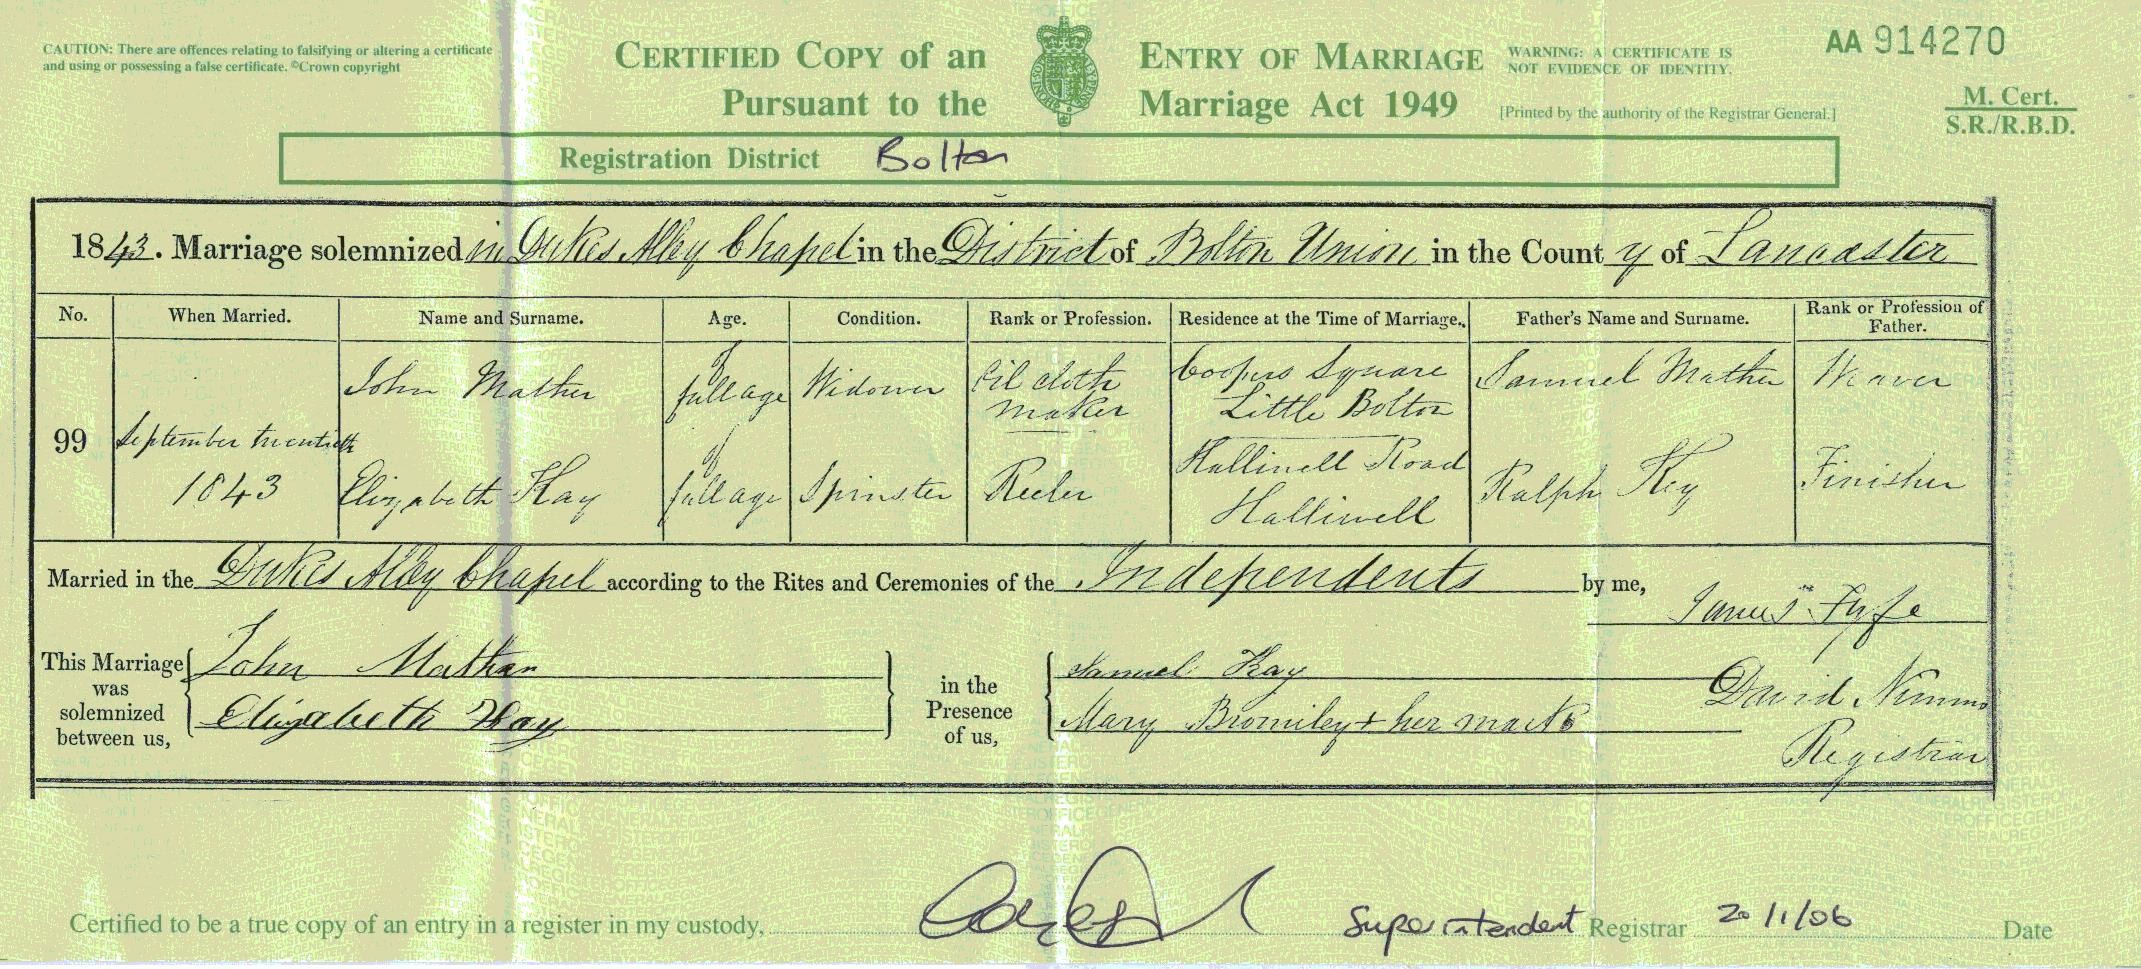 CAUTION: There are offences relating to falsifying or altering a certificate
and using or possessing a false certificate. ©Crown copyright
CERTIFIED COPY of an ENTRY OF MARRIAGE
Pursuant to the Marriage Act 1949
WARNING: A CERTIFICATE IS
NOT EVIDENCE OF IDENTITY.
[Printed by the authority of the Registrar General.]
AA 914270
M. Cert.
S.R./R.B.D.
Registration District Bolton
1843. Marriage solemnized in Dukes Alley Chapel in the District of Bolton Union in the County of Lancaster
No. When Married. Name and Surname. Age. Condition. Rank or Profession. Residence at the Time of Marriage. Father's Name and Surname. Rank or Profession of Father.
99
September twentieth
1843
John Mather
of
full age
Widower
Oil cloth
maker
Coopers Square
Little Bolton
Samuel Mather
Weaver
Elizabeth Kay
of
full age
Spinster
Reeler
Halliwell Road
Halliwell
Ralph Key
Finisher
Married in the Dukes Alley Chapel according to the Rites and Ceremonies of the Independents by me,
James Fyfe
This Marriage
was
solemnized
between us,
John Mather
Elizabeth Kay
in the
Presence
of us,
Samuel Kay
Mary Bromiley + her mark
David Nimmo
Registrar
Certified to be a true copy of an entry in a register in my custody, Superintendent Registrar 20/1/06 Date